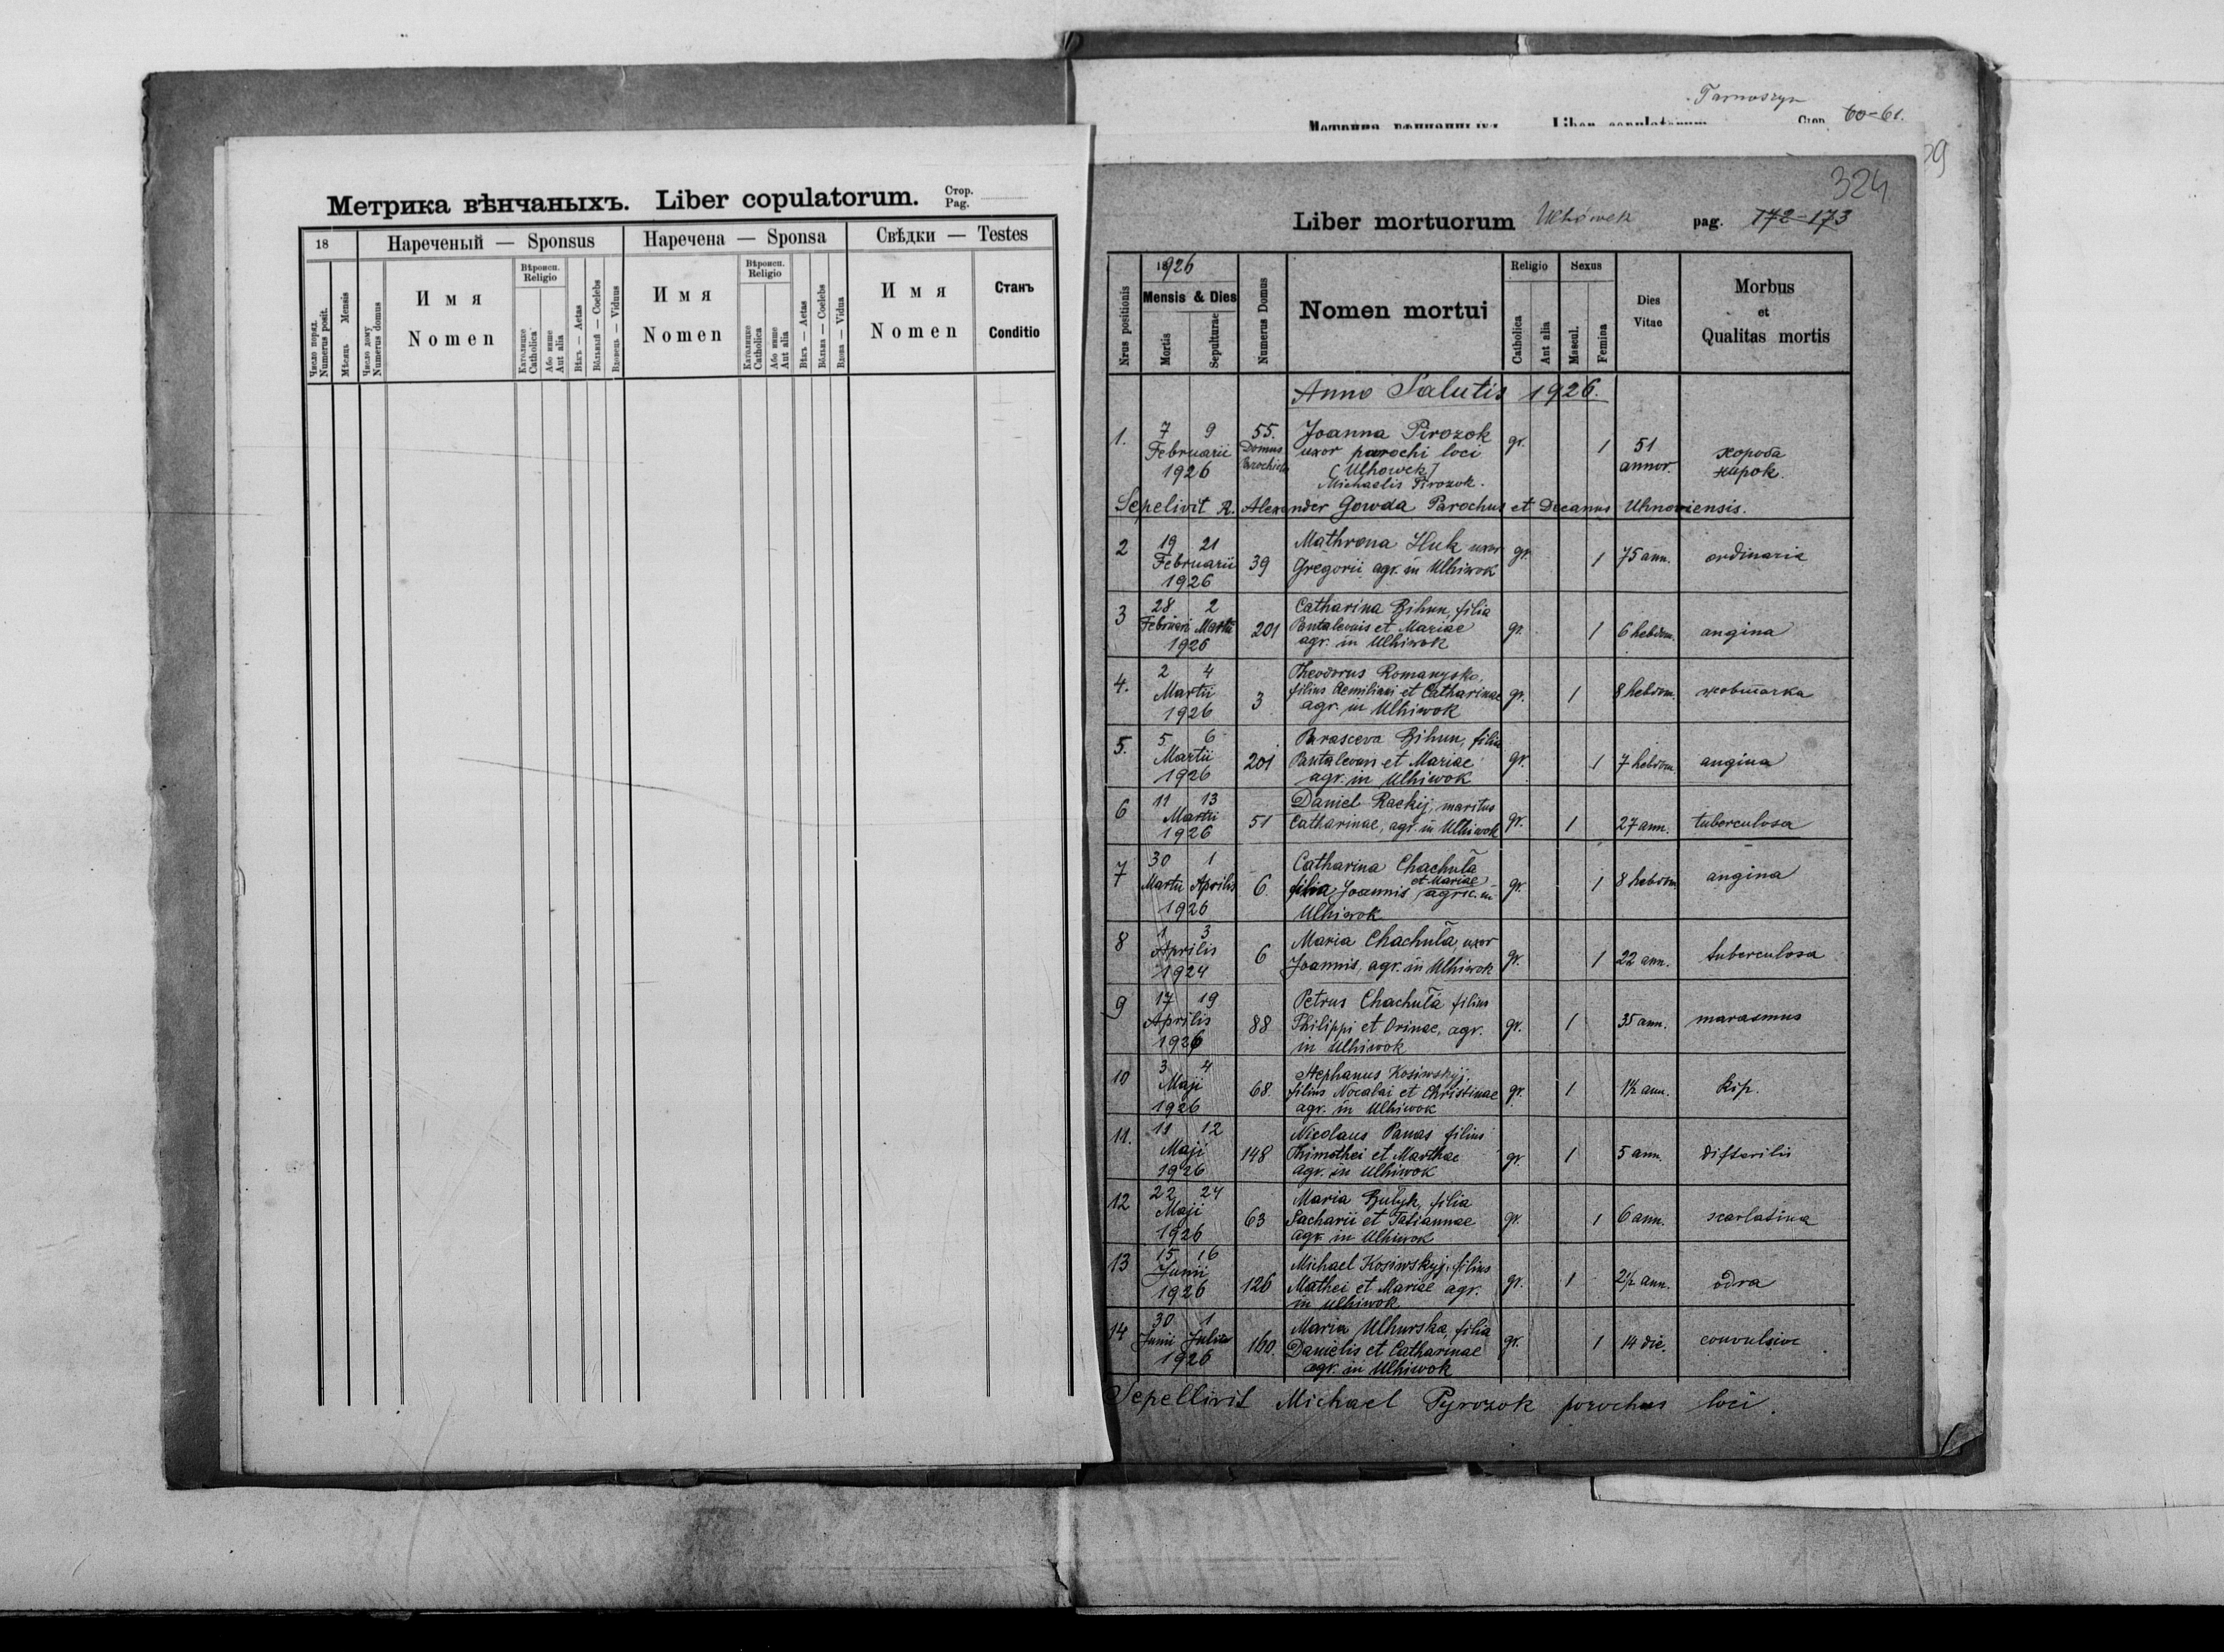 Метрика вѣнчаныхъ. Liber copulatorum. Стор. Pag.
18
Нареченый — Sponsus
Наречена — Sponsa
Свѣдки — Testes
Число поряд. Numerus posit.
Мѣсяць Mensis
Число дому Numerus domus
Имя
Nomen
Вѣроисп. Religio
Католицке Catholica
Або инше Aut alia
Вѣкъ — Aetas
Вôльный — Coelebs
Вдовець — Viduus
Имя
Nomen
Вѣроисп. Religio
Католицке Catholica
Або инше Aut alia
Вѣкъ — Aetas
Вôльна — Coelebs
Вдова — Vidua
Имя
Nomen
Станъ
Conditio
Tarnoszyn
Метрика вѣнчаныхъ Liber copulatorum Стор. 60-61.
324
Liber mortuorum Ulhówek pag. 172-173
Nrus positionis
1926
Mensis & Dies
Mortis
Sepulturae
Numerus Domus
Nomen mortui
Religio
Catholica
Aut alia
Sexus
Mascul.
Femina
Dies Vitae
Morbus et Qualitas mortis
Anno Salutis 1926.
1. 7 9 55. Joanna Pirozok gr. 1 51
Februarii Domus uxor parochi loci annor. хороба
1926 [Ulhowek] нирок.
Michaelis Pirozok.
Sepelivit R. Alexander Gowda Parochus et Decanus Uhnoviensis.
2 19 21 Mathrona Huk uxor gr. 1 75 ann. ordinaria
Februarii 39 Gregorii agr. in Ulhiwok
1926
3 28 2 Catharina Bihun, filia
Februari Martii 201 Pantaleonis et Mariae gr. 1 6 hebdom. angina
1926 agr. in Ulhiwok
4. 2 4 Theodorus Romanysko,
Martii 3 filius Aemiliani et Catharinae gr. 1 8 hebdom. жовтачка
1926 agr. in Ulhiwok
5. 5 6 Parasceva Bihun, filia
Martii 201 Pantaleonis et Mariae gr. 1 7 hebdom. angina
1926 agr. in Ulhiwok
6 11 13 Daniel Rackij, maritus
Martii 51 Catharinae, agr. in Ulhiwok gr. 1 27 ann. tuberculosa
1926
7 30 1 Catharina Chachuła
Martii Aprilis 6. filia Joannis et Mariae agric. in gr. 1 8 hebdom angina
1926 Ulhiwok
8 1 3 Maria Chachuła, uxor
Aprilis 6 Joannis, agr. in Ulhiwok gr. 1 22 ann. tuberculosa
1924
9 17 19 Petrus Chachuła filius
Aprilis 88 Philippi et Orinae, agr. gr. 1 35 ann. marasmus
1926 in Ulhiwok
10 3 4 Stephanus Kosiwskyj
Maji 68. filius Nocalai et Christinae gr. 1 1½ ann. kip.
1926 agr. in Ulhiwok
11. 11 12 Nicolaus Panas filius
Maji 148 Thimothei et Marthae gr. 1 5 ann. difterilis
1926 agr. in Ulhiwok
12 22 24 Maria Bułyk, filia
Maji 63 Sacharii et Tatiannae gr. 1 6 ann. scarlatina
1926 agr. in Ulhiwok
13 15 16 Michael Kosiwskyj, filius
Junii 126 Mathei et Mariae agr. gr. 1 2½ ann. odra
1926 in Ulhiwok
14 30 1 Maria Ulhurska, filia
Junii Julia 160. Danielis et Catharinae gr. 1 14 die. convulsive
1926 agr. in Ulhiwok
Sepellivit Michael Pyrozok porochus loci.